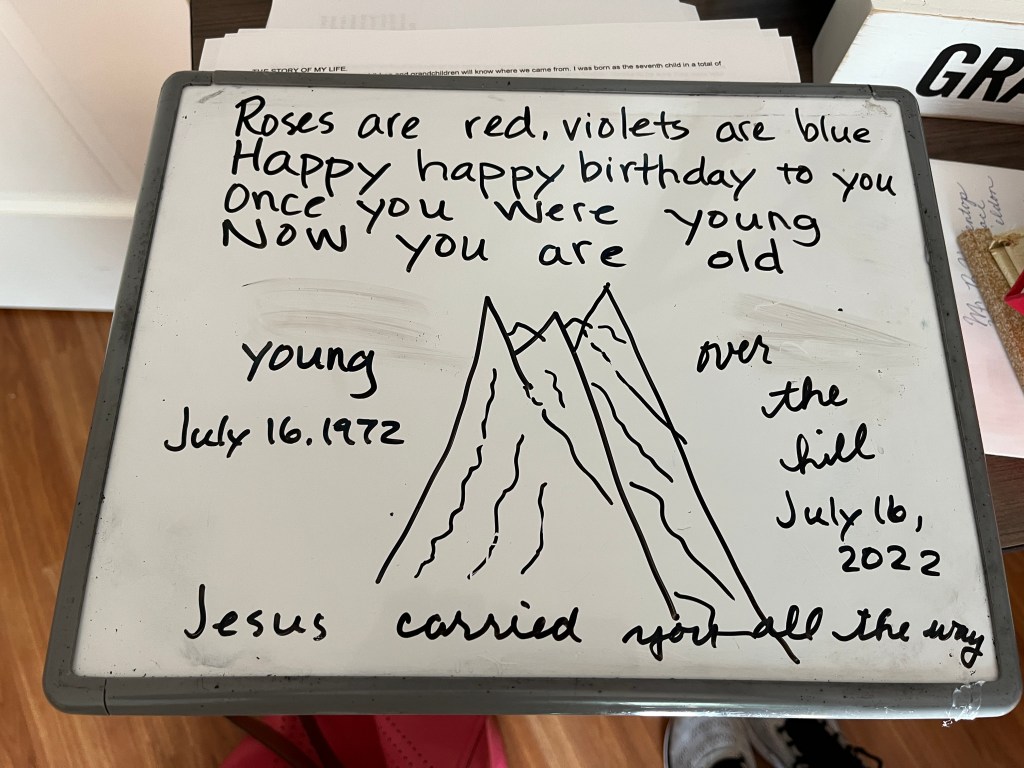 THE STORY OF MY LIFE.
and grandchildren will know where we came from. I was born as the seventh child in a total of
GRA
Roses are red, violets are blue
Happy happy birthday to you
Once you were young
Now you are old
young
July 16, 1972
over
the
hill
July 16,
2022
Jesus carried you all the way